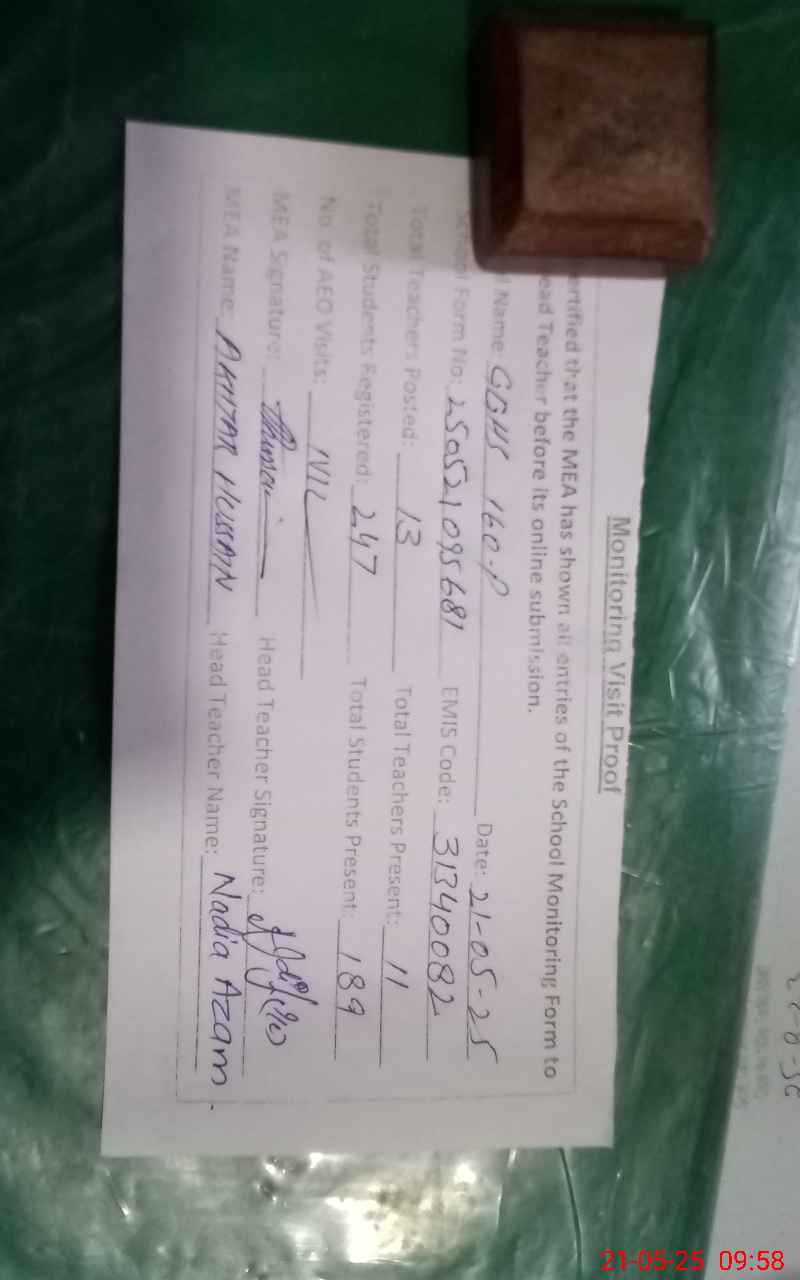 Monitoring Visit Proof
ertified that the MEA has shown all entries of the School Monitoring Form to
ead Teacher before its online submission.
l Name: GGHS 160-P Date: 21-05-25
School Form No: 250521095681 EMIS Code: 31340082
Total Teachers Posted: 13 Total Teachers Present: 11
Total Students Registered: 247 Total Students Present: 189
No. of AEO Visits: NIL
MEA Signature: Head Teacher Signature:
MEA Name: AKHTAR HUSSAIN Head Teacher Name: Nadia Azam.
21-05-25 09:58